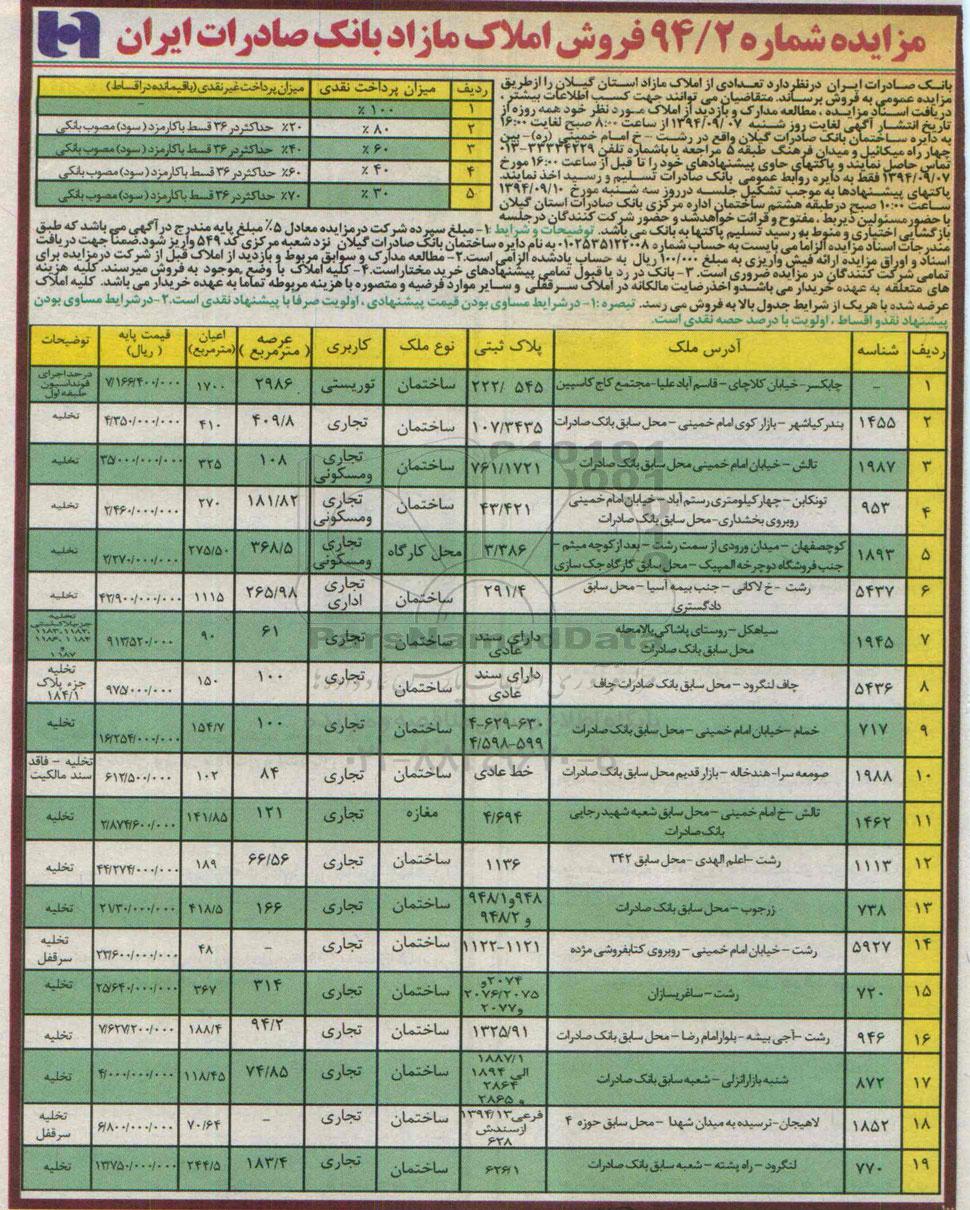 مزایده شماره ۹۴/۲ فروش املاک مازاد بانک صادرات ایران
بانک صادرات ایران در نظر دارد تعدادی از املاک مازاد استان گیلان را از طریق
مزایده عمومی به فروش برساند. متقاضیان می توانند جهت کسب اطلاعات بیشتر ،
دریافت اسناد مزایده ، مطالعه مدارک و بازدید از املاک مورد نظر خود همه روزه از
تاریخ انتشار آگهی لغایت روز شنبه ۱۳۹۴/۰۹/۰۷ از ساعت ۸:۰۰ صبح لغایت ۱۶:۰۰
به دایره ساختمان بانک صادرات گیلان واقع در رشت - خ امام خمینی (ره)- بین
چهار راه میکائیل و میدان فرهنگ طبقه ۵ مراجعه یا باشماره تلفن ۳۳۳۳۴۲۲۹-۰۱۳
تماس حاصل نمایند و پاکتهای حاوی پیشنهادهای خود را تا قبل از ساعت ۱۶:۰۰ مورخ
۱۳۹۴/۰۹/۰۷ فقط به دایره روابط عمومی بانک صادرات تسلیم و رسید اخذ نمایند.
پاکتهای پیشنهادها به موجب تشکیل جلسه در روز سه شنبه مورخ ۱۳۹۴/۰۹/۱۰
ساعت ۱۰:۰۰ صبح درطبقه هشتم ساختمان اداره مرکزی بانک صادرات استان گیلان
با حضور مسئولین ذیربط ، مفتوح و قرائت خواهد شد و حضور شرکت کنندگان در جلسه
بازگشایی اختیاری و منوط به رسید تسلیم پاکتها به بانک می باشد. توضیحات و شرایط :۱- مبلغ سپرده شرکت در مزایده معادل ۵٪ مبلغ پایه مندرج در آگهی می باشد که طبق
مندرجات اسناد مزایده الزاما می بایست به حساب شماره ۰۱۰۲۵۳۵۱۲۲۰۰۸ به نام دایره ساختمان بانک صادرات گیلان نزد شعبه مرکزی کد ۵۴۹ واریز شود.ضمناً جهت دریافت
اسناد و اوراق مزایده ارائه فیش واریزی به مبلغ ۱۰۰/۰۰۰ ریال به حساب یادشده الزامی است.۲- مطالعه مدارک و سوابق مربوط و بازدید از املاک قبل از شرکت در مزایده برای
تمامی شرکت کنندگان در مزایده ضروری است. ۳- بانک در رد یا قبول تمامی پیشنهادهای خرید مختار است.۴- کلیه املاک با وضع موجود به فروش میرسند. کلیه هزینه
های متعلقه به عهده خریدار می باشد و اخذ رضایت مالکانه در املاک سرقفلی و سایر موارد فرضیه و متصوره با هزینه مربوطه تماما به عهده خریدار می باشد. کلیه املاک
عرضه شده با هریک از شرایط جدول بالا به فروش می رسد. تبصره :۱- در شرایط مساوی بودن قیمت پیشنهادی ، اولویت صرفا با پیشنهاد نقدی است.۲- در شرایط مساوی بودن
پیشنهاد نقد و اقساط ، اولویت با درصد حصه نقدی است.
ردیف میزان پرداخت نقدی میزان پرداخت غیر نقدی (باقیمانده در اقساط)
۱ ۱۰۰ ٪ -
۲ ۸۰ ٪ ۲۰٪ حداکثر در ۳۶ قسط با کارمزد (سود) مصوب بانکی
۳ ۶۰ ٪ ۴۰٪ حداکثر در ۳۶ قسط با کارمزد (سود) مصوب بانکی
۴ ۴۰ ٪ ۶۰٪ حداکثر در ۳۶ قسط با کارمزد (سود) مصوب بانکی
۵ ۳۰ ٪ ۷۰٪ حداکثر در ۳۶ قسط با کارمزد (سود) مصوب بانکی
ردیف شناسه آدرس ملک پلاک ثبتی نوع ملک کاربری عرصه (مترمربع) اعیان (مترمربع) قیمت پایه (ریال) توضیحات
۱ - چابکسر- خیابان کلاچای - قاسم آباد علیا-مجتمع کاج کاسپین ۵۴۵ /۲۲۲ ساختمان توریستی ۲۹۸۶ ۱۷۰۰ ۷/۱۶۶/۴۰۰/۰۰۰ در حد اجرای فونداسیون طبقه اول
۲ ۱۴۵۵ بندر کیاشهر - بازار کوی امام خمینی - محل سابق بانک صادرات ۱۰۷/۳۴۳۵ ساختمان تجاری ۴۰۹/۸ ۴۱۰ ۴/۳۵۰/۰۰۰/۰۰۰ تخلیه
۳ ۱۹۸۷ تالش - خیابان امام خمینی محل سابق بانک صادرات ۷۶۱/۱۷۲۱ ساختمان تجاری ومسکونی ۱۰۸ ۳۲۵ ۳۵/۰۰۰/۰۰۰/۰۰۰ تخلیه
۴ ۹۵۳ تونکابن - چهار کیلومتری رستم آباد - خیابان امام خمینی روبروی بخشداری- محل سابق بانک صادرات ۴۳/۴۲۱ ساختمان تجاری ومسکونی ۱۸۱/۸۲ ۲۷۰ ۲/۴۶۰/۰۰۰/۰۰۰ تخلیه
۵ ۱۸۹۳ کوچصفهان - میدان ورودی از سمت رشت - بعد از کوچه میثم - جنب فروشگاه دوچرخه المپیک - محل سابق کارگاه جک سازی ۳/۳۸۶ محل کارگاه تجاری ومسکونی ۳۶۸/۵ ۲۷۵/۵۰ ۲/۲۷۰/۰۰۰/۰۰۰ تخلیه
۶ ۵۴۳۷ رشت - خ لاکانی - جنب بیمه آسیا - محل سابق دادگستری ۲۹۱/۴ ساختمان تجاری اداری ۲۶۵/۹۸ ۱۱۱۵ ۴۲/۹۰۰/۰۰۰/۰۰۰ تخلیه
۷ ۱۹۴۵ سیاهکل - روستای پاشاکی بالامحله محل سابق بانک صادرات دارای سند عادی ساختمان تجاری ۶۱ ۹۰ ۹۱۳/۵۲۰/۰۰۰ تخلیه
۸ ۵۴۳۶ چاف لنگرود - محل سابق بانک صادرات چاف دارای سند عادی ساختمان تجاری ۱۰۰ ۱۵۰ ۹۷۵/۰۰۰/۰۰۰ تخلیه جزء پلاک ۱۸۴/۱
۹ ۷۱۷ خمام - خیابان امام خمینی - محل سابق بانک صادرات ۴-۶۲۹-۶۳۰ ۴/۵۹۸-۵۹۹ ساختمان تجاری ۱۰۰ ۱۵۴/۷ ۱۶/۲۵۴/۰۰۰/۰۰۰ تخلیه
۱۰ ۱۹۸۸ صومعه سرا- هندخاله - بازار قدیم محل سابق بانک صادرات خط عادی ساختمان تجاری ۸۴ ۱۰۲ ۶۱۲/۵۰۰/۰۰۰ تخلیه - فاقد سند مالکیت
۱۱ ۱۴۶۲ تالش - خ امام خمینی - محل سابق شعبه شهید رجایی بانک صادرات ۴/۶۹۴ مغازه تجاری ۱۲۱ ۱۴۱/۸۵ ۲/۸۷۴/۶۰۰/۰۰۰ تخلیه
۱۲ ۱۱۱۳ رشت -اعلم الهدی - محل سابق ۳۴۲ ۱۱۳۶ ساختمان تجاری ۶۶/۵۶ ۱۸۹ ۴۴/۲۷۴/۰۰۰/۰۰۰ تخلیه
۱۳ ۷۳۸ زرجوب - محل سابق بانک صادرات ۹۴۸و۹۴۸/۱ و ۹۴۸/۲ ساختمان تجاری ۱۶۶ ۴۱۸/۵ ۲۱/۳۰۰/۰۰۰/۰۰۰ تخلیه
۱۴ ۵۹۲۷ رشت - خیابان امام خمینی - روبروی کتابفروشی مژده ۱۱۲۱-۱۱۲۲ ساختمان تجاری - ۴۸ ۲۳/۶۰۰/۰۰۰/۰۰۰ تخلیه سرقفل
۱۵ ۷۲۰ رشت - ساغریسازان ۲۰۷۴و ۲۰۷۶/۲۰۷۵ و۲۰۷۷ ساختمان تجاری ۳۱۴ ۳۶۷ ۲۵/۶۴۰/۰۰۰/۰۰۰ تخلیه
۱۶ ۹۴۶ رشت -آجی بیشه - بلوار امام رضا - محل سابق بانک صادرات ۱۳۲۵/۹۱ ساختمان تجاری ۹۴/۲ ۱۸۸/۴ ۷/۶۲۷/۲۰۰/۰۰۰ تخلیه
۱۷ ۸۷۲ شنبه بازار انزلی - شعبه سابق بانک صادرات ۱۸۸۷/۱ الی ۱۸۹۴ ۲۸۶۴ و ۲۸۶۵ ساختمان تجاری ۷۴/۸۵ ۱۱۸/۴۵ ۴/۰۰۰/۰۰۰/۰۰۰ تخلیه
۱۸ ۱۸۵۲ لاهیجان- نرسیده به میدان شهدا - محل سابق حوزه ۴ فرعی ۱۳۹۴/۱۳ از سندش ۶۲۸ ساختمان تجاری - ۷۰/۶۴ ۶/۸۰۰/۰۰۰/۰۰۰ تخلیه سرقفل
۱۹ ۷۷۰ لنگرود - راه پشته - شعبه سابق بانک صادرات ۶۲۶/۱ ساختمان تجاری ۱۸۳/۴ ۲۴۴/۵ ۱۳/۷۵۰/۰۰۰/۰۰۰ تخلیه
ParsNamadData